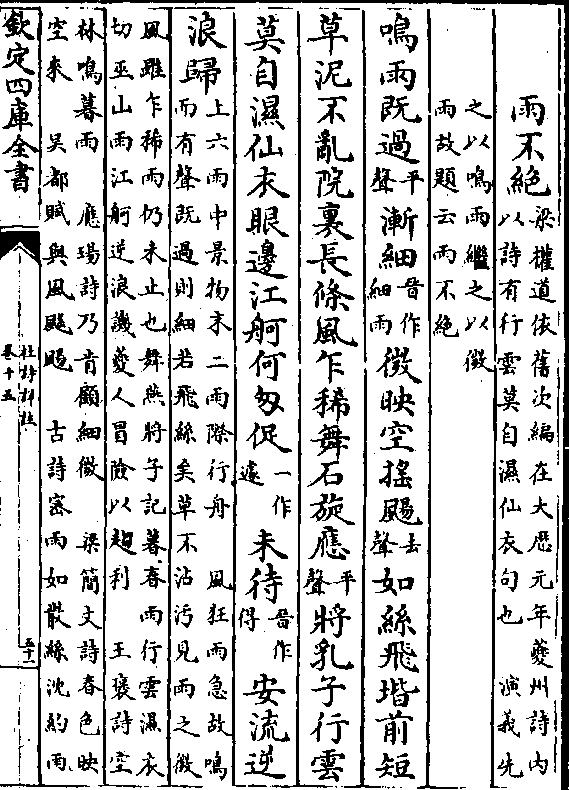 雨不絶梁權道依舊次編在大厯元年夔州詩内以詩有行雲莫自濕仙衣句也 演義先
之以鳴雨繼之以微雨故題云雨不絶
鳴雨既過平聲漸細晉作細雨微映空摇颺去聲如絲飛堦前短
草泥不亂院裏長條風乍稀舞石旋應平聲將乳子行雲
莫自濕仙衣眼邊江舸何匆促一作遽未待晉作得安流逆
浪歸上六雨中景物末二雨際行舟 風狂雨急故鳴而有聲既過則細若飛絲矣草不沾汚見雨之微
風雖乍稀雨仍未止也舞燕將子記暮春雨行雲濕衣切巫山雨江舸逆浪譏夔人冒險以趨利 王褒詩空
林鳴暮雨 應瑒詩乃肯顧細微 梁簡文詩春色映空來 吴都賦與風飇颺 古詩密雨如散絲沈約雨
欽定四庫全書
杜詩詳註
卷十五
五十一